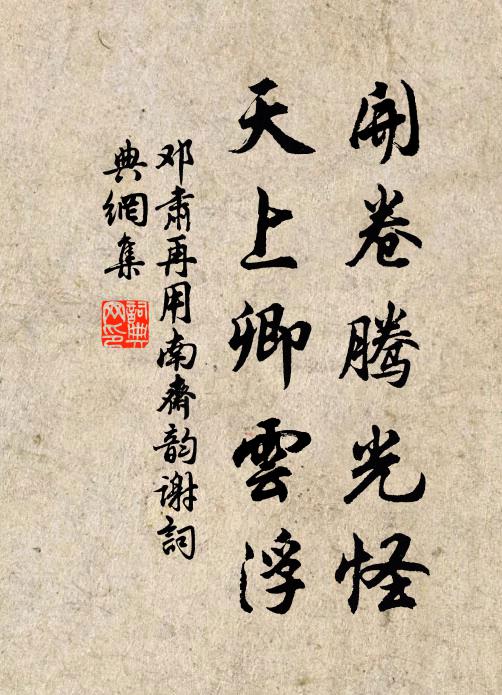 開卷腾光怪
天上卿雲浮
邓肅再用南齋韵谢詞
典網集
詞典網印